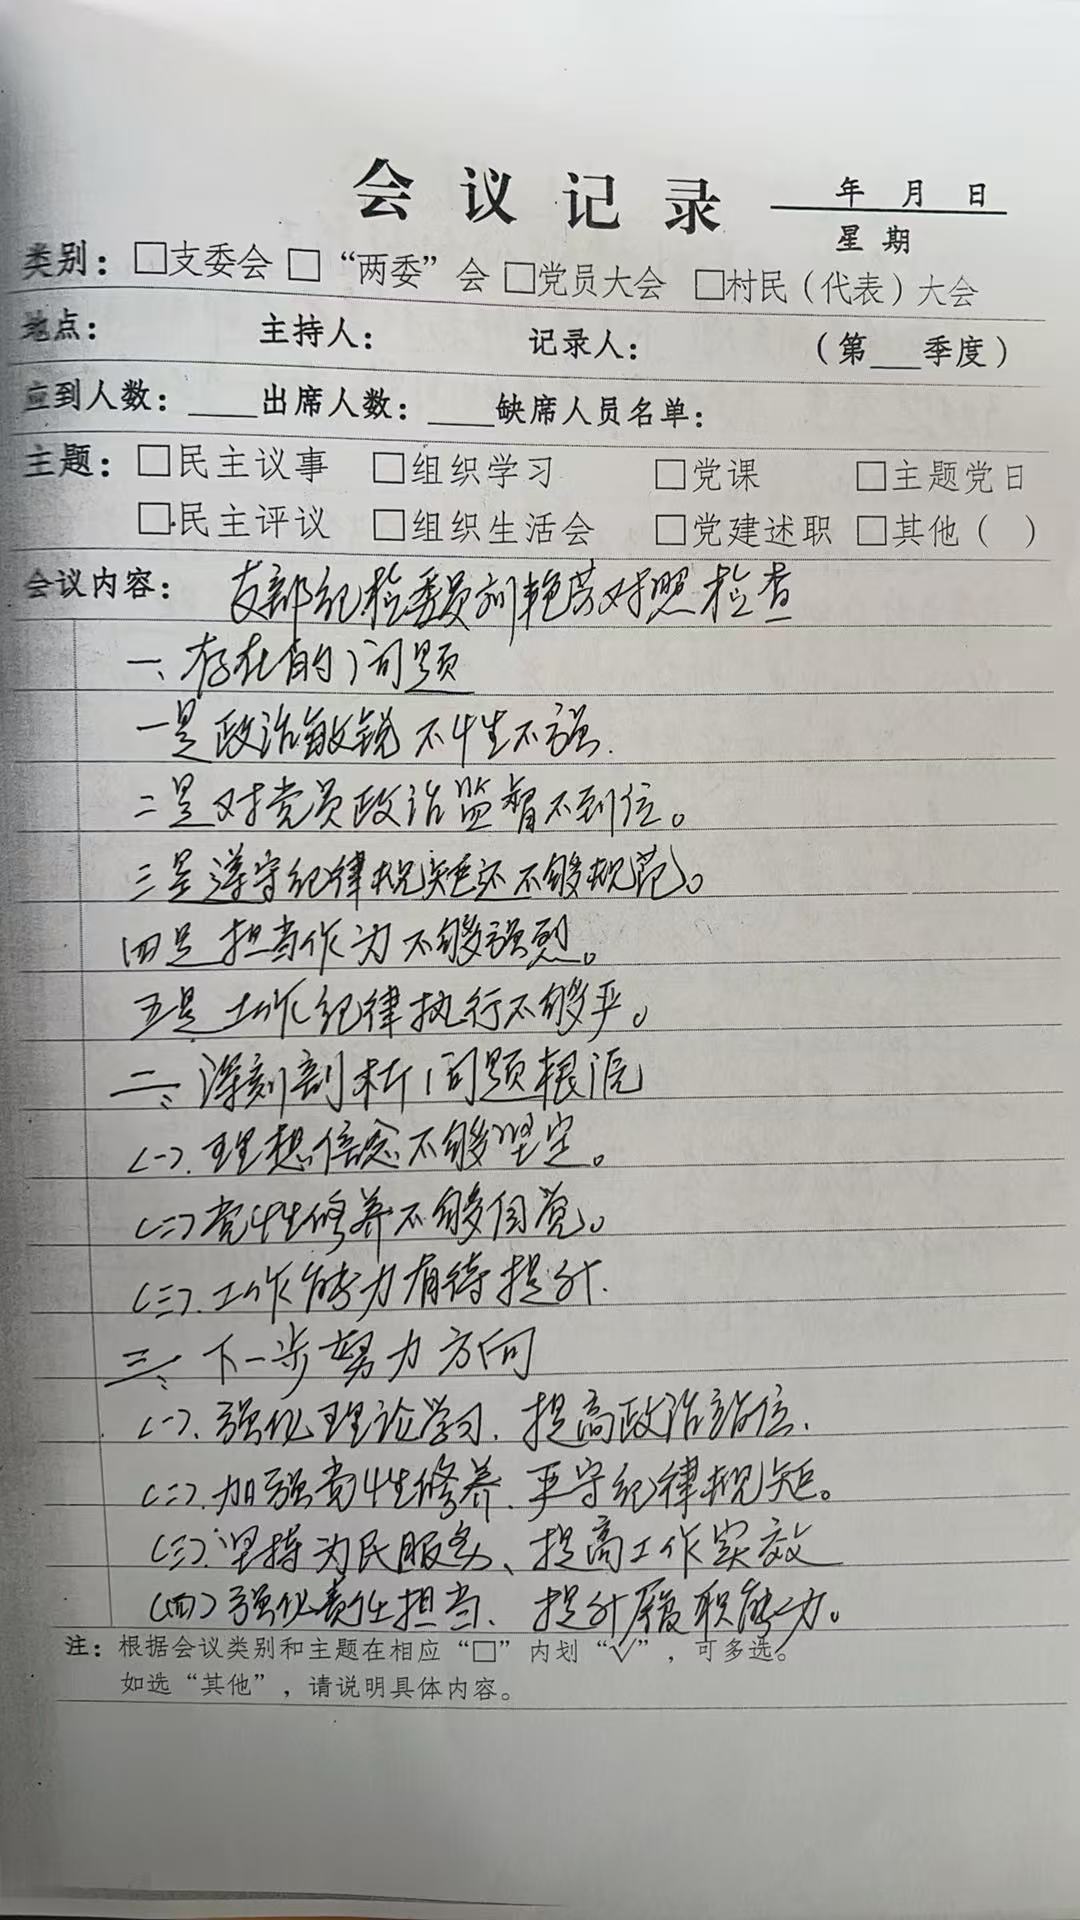 会议记录
年 月 日
星期
类别：□支委会 □“两委”会 □党员大会 □村民（代表）大会
地点： 主持人： 记录人： （第___季度）
应到人数：____出席人数：____缺席人员名单：
主题：□民主议事 □组织学习 □党课 □主题党日
□民主评议 □组织生活会 □党建述职 □其他（ ）
会议内容： 支部纪检委员刘艳芳对照检查
一、存在的问题
一是政治敏锐不性不强.
二是对党员政治监督不到位。
三是遵守纪律规矩还不够规范。
四是担当作为不够强烈。
五是工作纪律执行不够严。
二、深刻剖析问题根源
(一).理想信念不够坚定。
(二)党性修养不够自觉。
(三).工作能力有待提升.
三、下一步努力方向
(一).强化理论学习.提高政治站位.
(二).加强党性修养.严守纪律规矩。
(三).坚持为民服务、提高工作实效
(四)强化责任担当、提升履职能力。
注：根据会议类别和主题在相应“□”内划“√”，可多选。
如选“其他”，请说明具体内容。